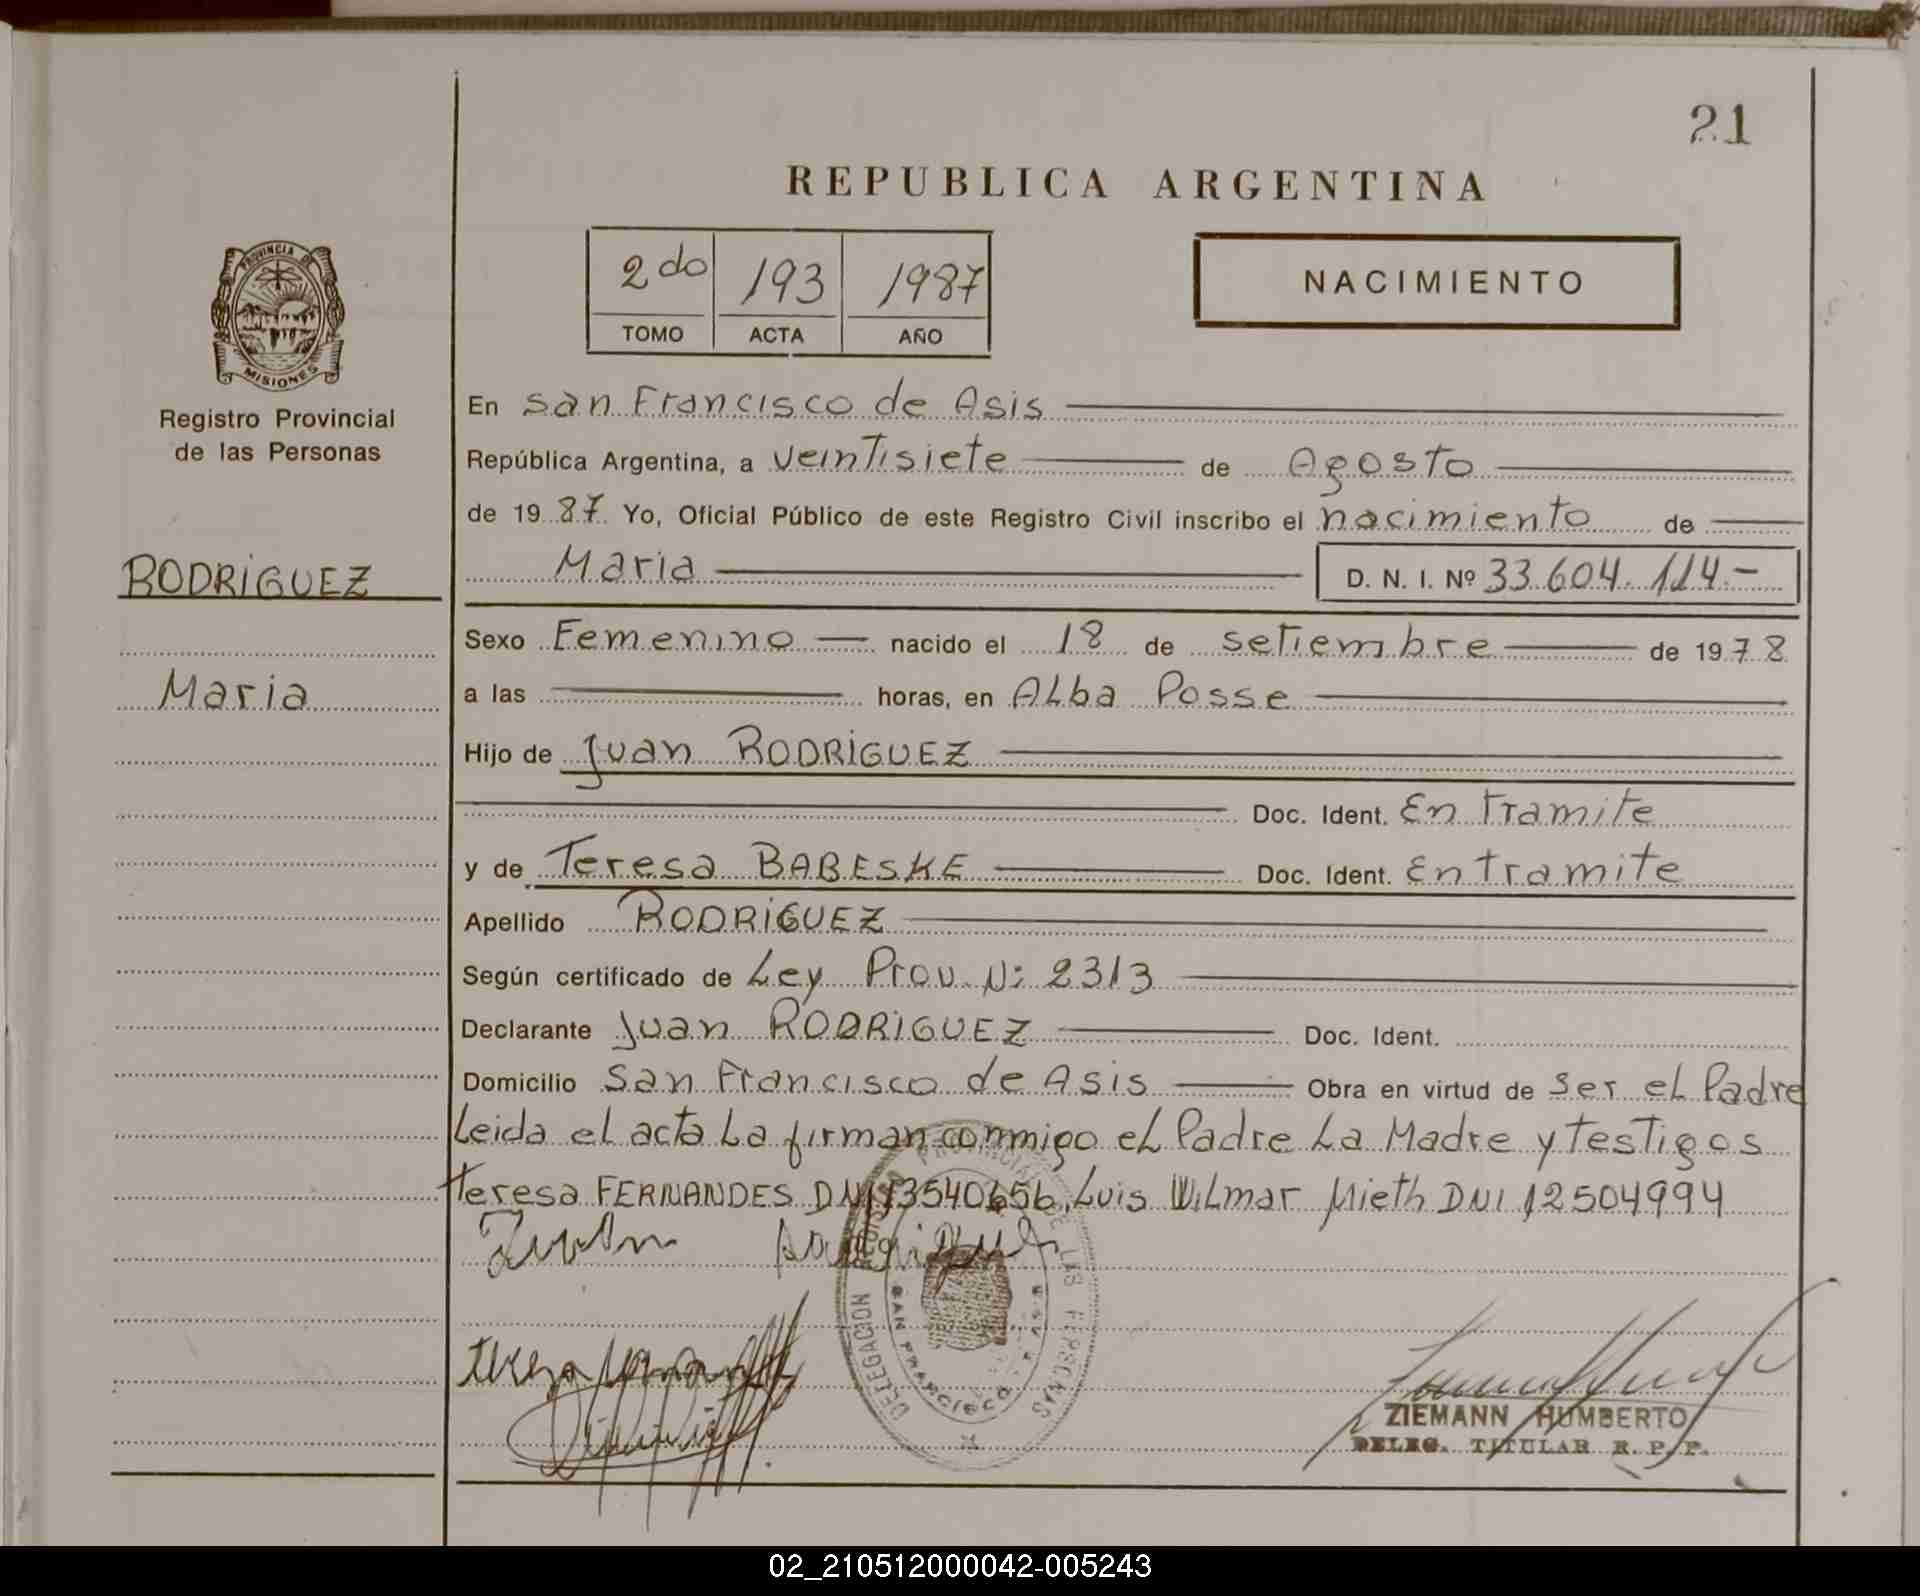 21
REPUBLICA ARGENTINA
2do 193 1987
TOMO ACTA AÑO
NACIMIENTO
PROVINCIA DE MISIONES
Registro Provincial
de las Personas
RODRIGUEZ
Maria
En San Francisco de Asis
República Argentina, a veintisiete de Agosto
de 1987 Yo, Oficial Público de este Registro Civil inscribo el nacimiento de
Maria D. N. I. Nº 33.604.114.-
Sexo Femenino nacido el 18 de setiembre de 1978
a las horas, en Alba Posse
Hijo de Juan RODRIGUEZ
Doc. Ident. En tramite
y de Teresa BABESKE Doc. Ident. En tramite
Apellido RODRIGUEZ
Según certificado de Ley Prov. Nº 2313
Declarante Juan RODRIGUEZ Doc. Ident.
Domicilio San Francisco de Asis Obra en virtud de ser el Padre
Leida el acta la firman conmigo el Padre La Madre y testigos
teresa FERNANDES DNI 13540656, Luis Wilmar Mieth DNI 12504994
DELEGACION REGISTRO PROVINCIAL DE LAS PERSONAS
SAN FRANCISCO DE ASIS
ZIEMANN HUMBERTO
DELEG. TITULAR R. P. P.
02_210512000042-005243